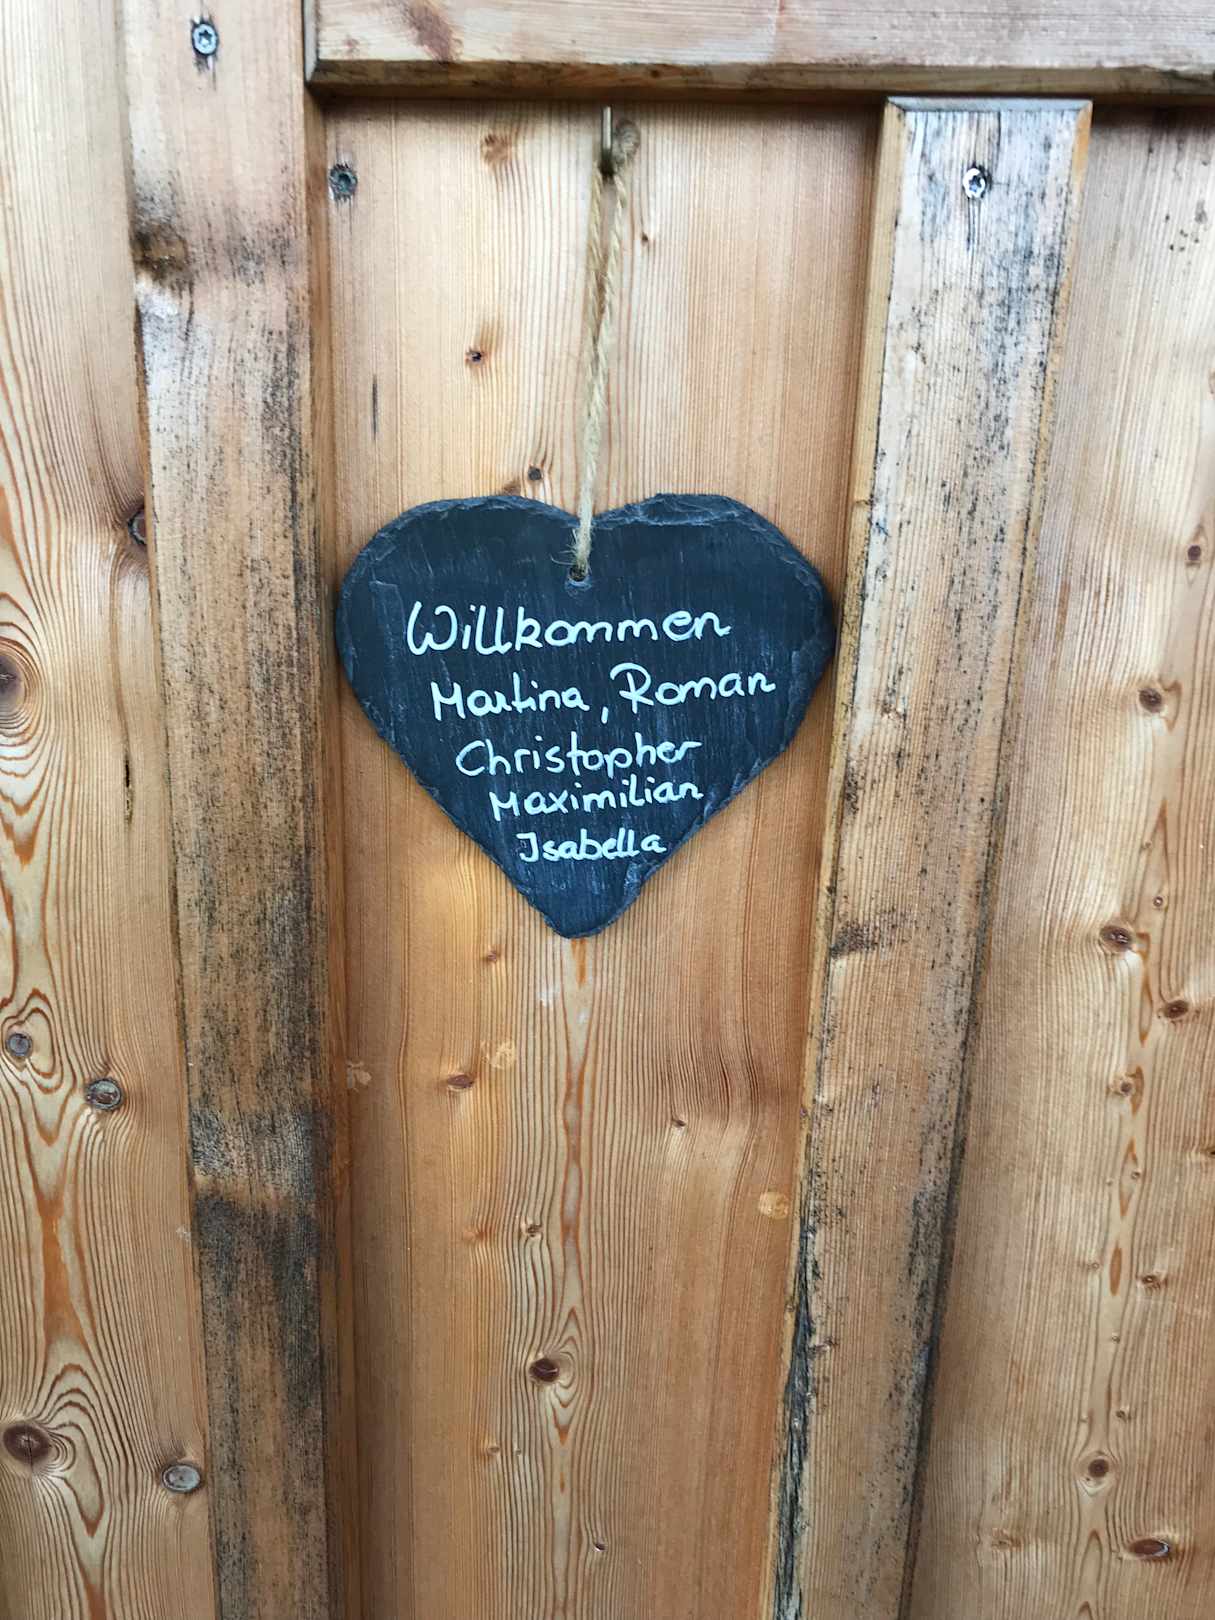 Willkommen
Martina, Roman
Christopher
Maximilian
Isabella